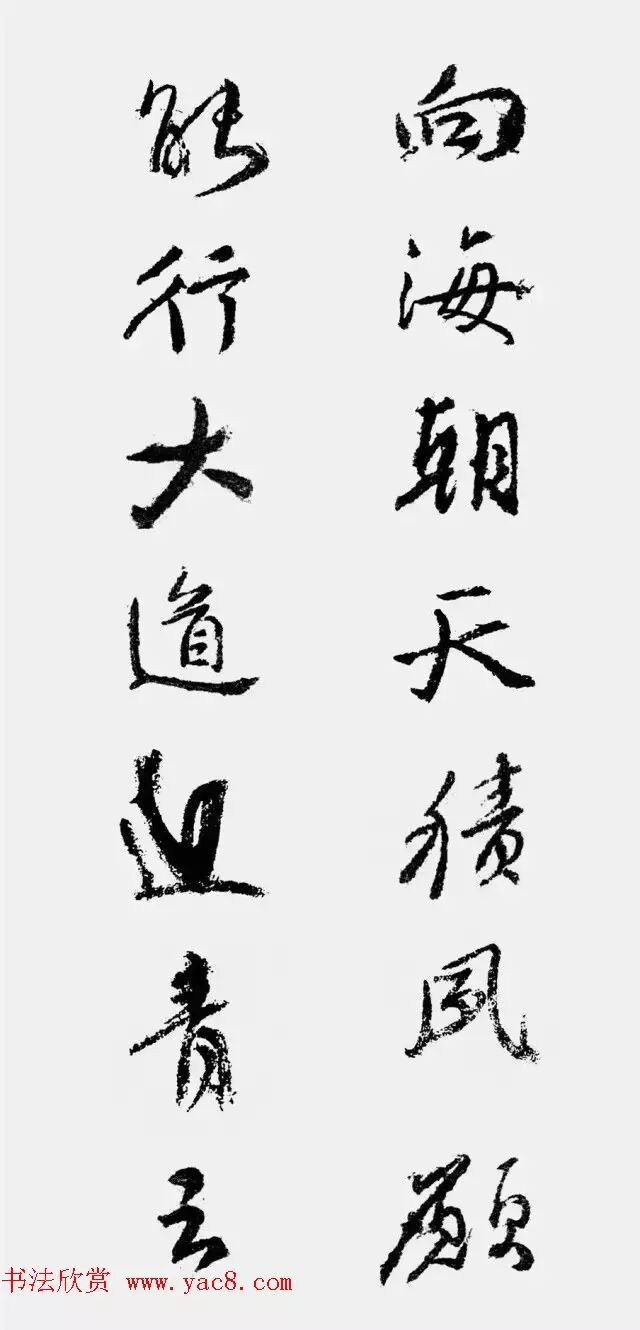 向海朝天積夙願
能行大道迎青云
书法欣赏 www.yac8.com